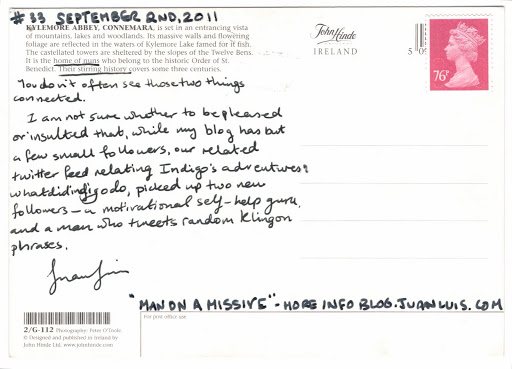 #33 SEPTEMBER 2ND, 2011
KYLEMORE ABBEY, CONNEMARA, is set in an entrancing vista
of mountains, lakes and woodlands. Its massive walls and flowering
foliage are reflected in the waters of Kylemore Lake famed for it fish.
The castellated towers are sheltered by the slopes of the Twelve Bens.
It is the home of nuns who belong to the historic Order of St.
Benedict. Their stirring history covers some three centuries.
John Hinde
IRELAND
5 0
76P
You don't often see those two things
connected.
I am not sure whether to be pleased
or insulted that, while my blog has but
a few small followers, our related
twitter feed relating Indigo's adventures,
whatdidindigodo, picked up two new
followers - a motivational self-help guru,
and a man who tweets random Klingon
phrases.
"MAN ON A MISSIVE" - MORE INFO BLOG.JUANLUIS.COM
2/G-112 Photography: Peter O'Toole
© Designed and published in Ireland by
John Hinde Ltd. www.johnhinde.com
For post office use